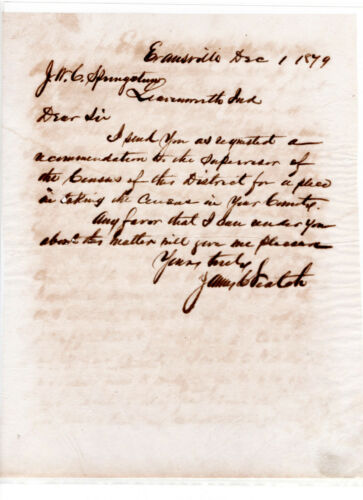 Evansville Dec 1 1879
J.W.C. Springston
Leavenworth Ind
Dear Sir
I send you as requested a
recommendation to the Supervisor of
the Census of this District for a place
in taking the Census in Your County.
Any favor that I can render You
about this matter will give me pleasure
Yours truly
James